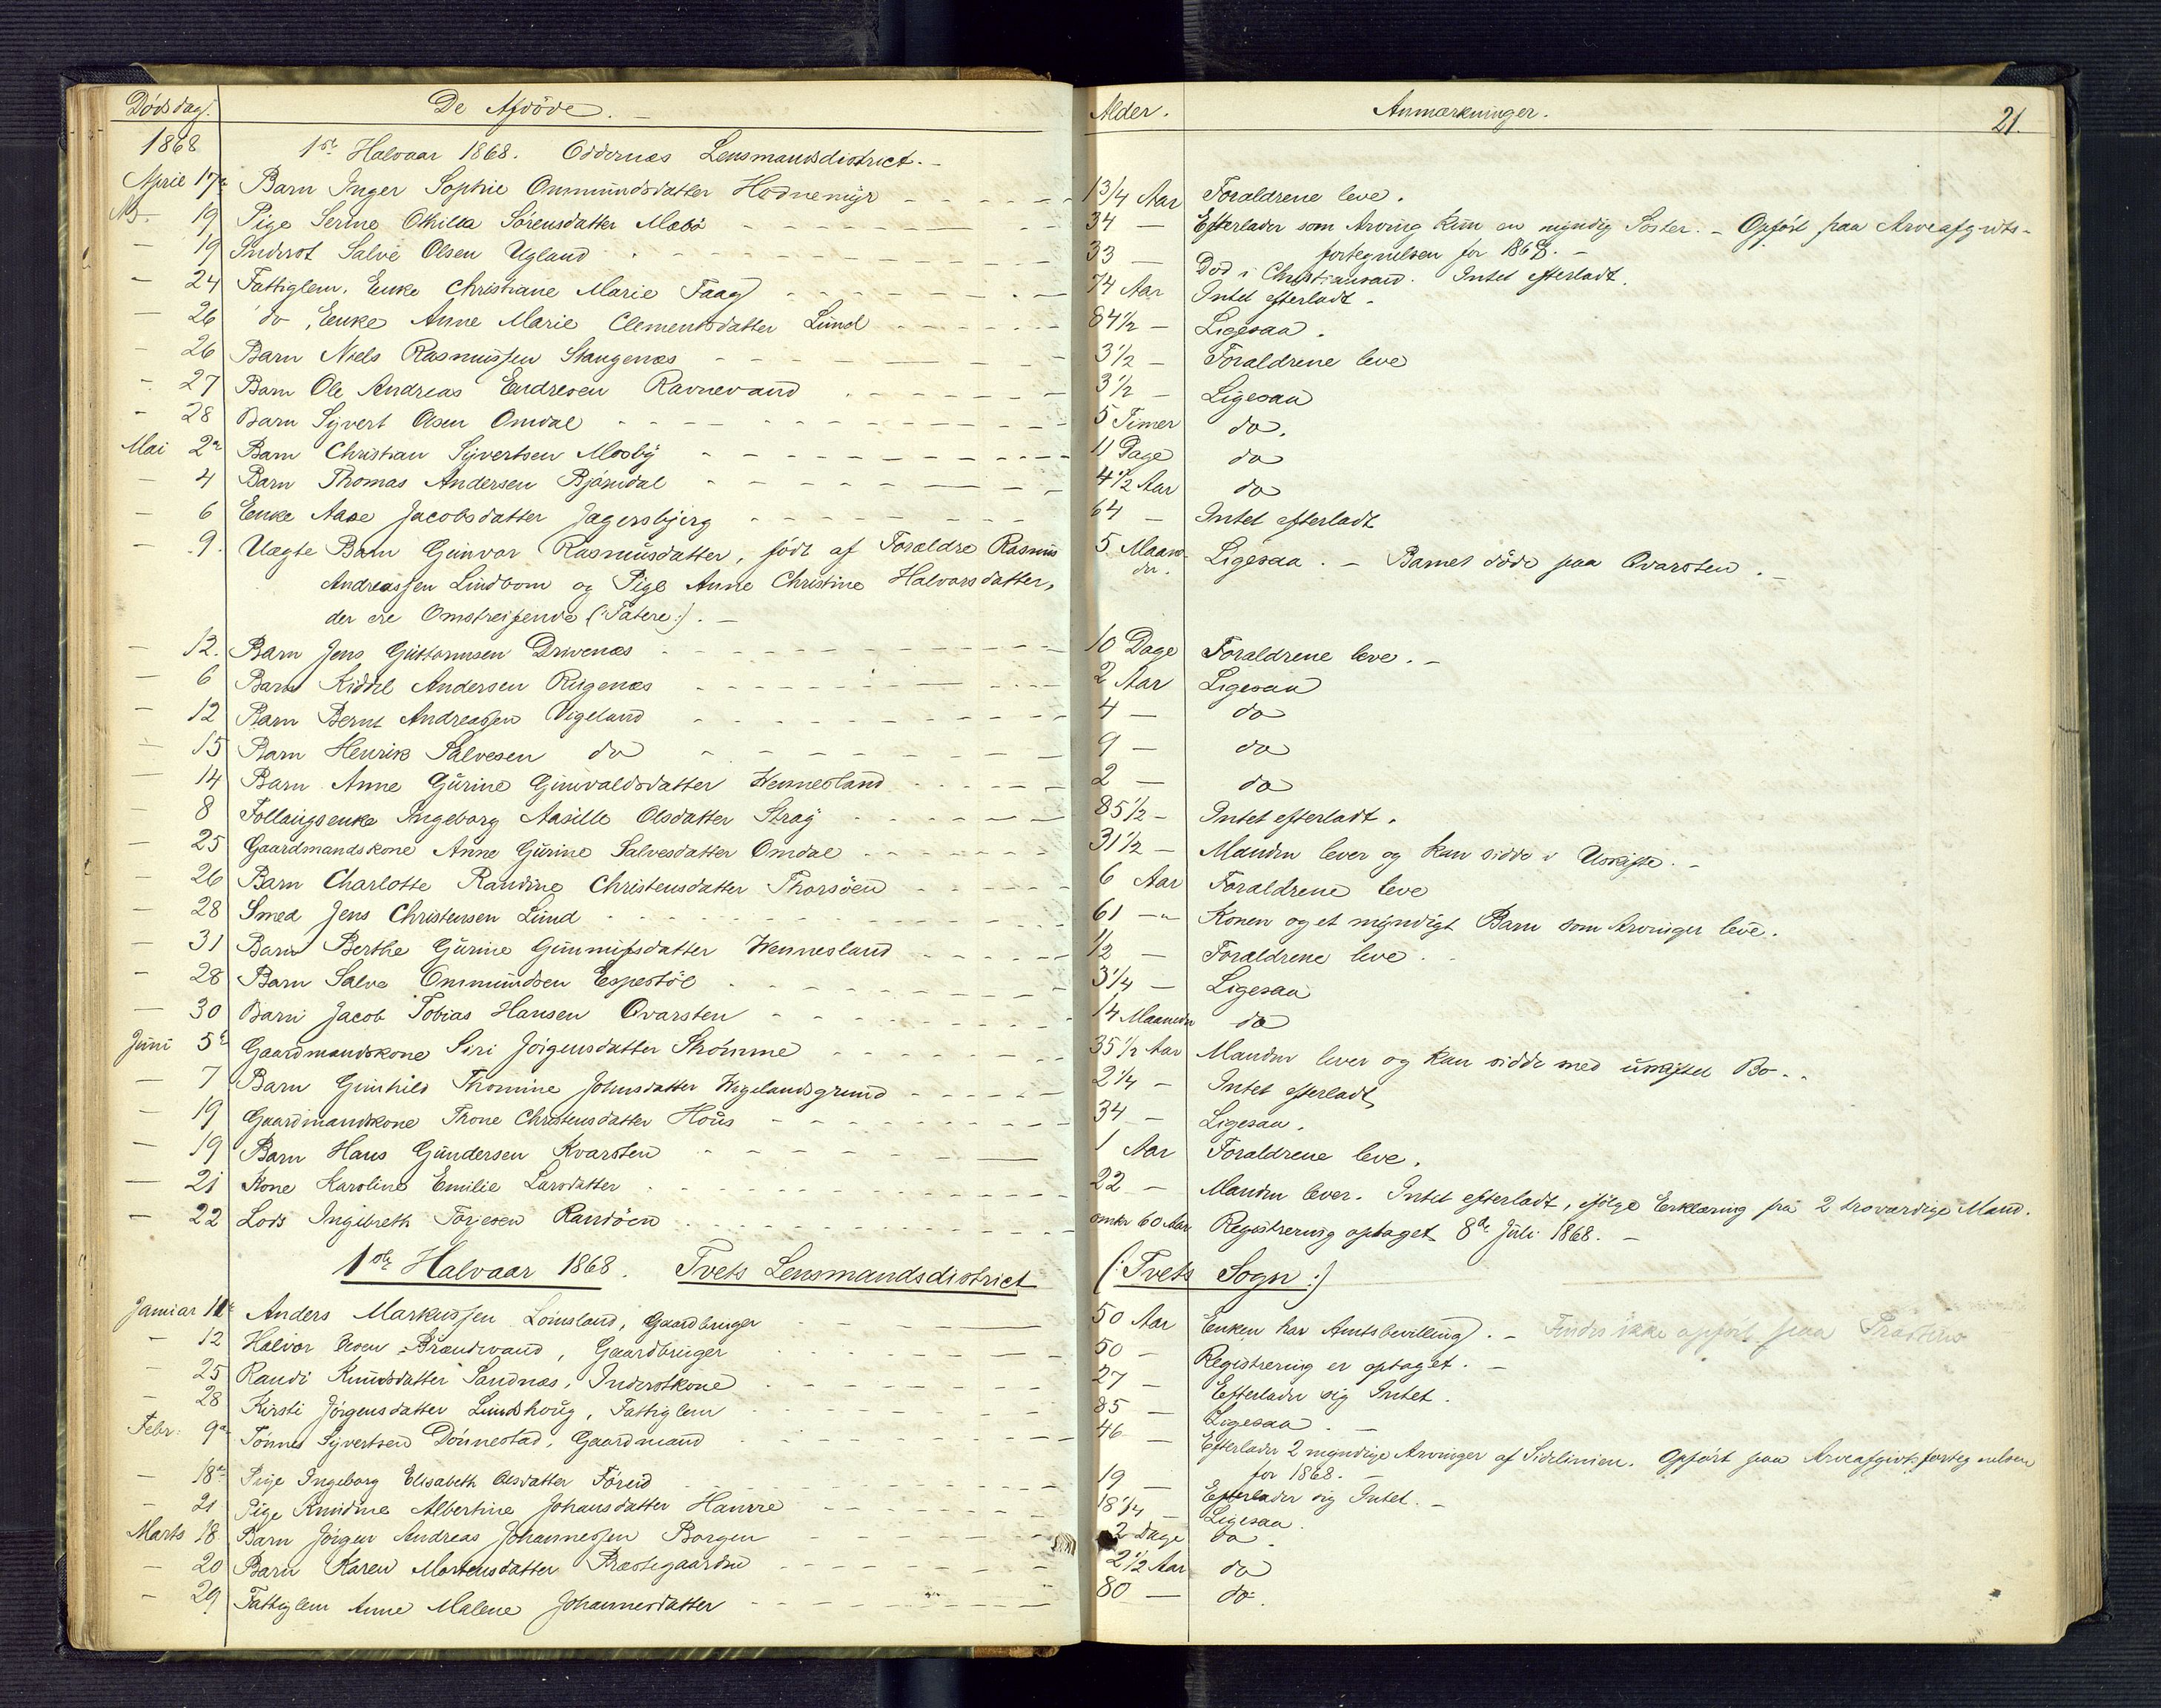 Dødsdag. De Afdøde. Alder. Anmærkninger. 21.
1868 1ste Halvaar 1868. Oddernæs Lensmandsdistrict.
April 17de Barn Inger Sophie Ommundsdatter Hodnemyr 1 3/4 Aar Forældrene leve.
do. 19 Pige Serine Othilia Sörensdatter Mæbö 34 — Efterlader som Arving kun en myndig Söster. - Opfört paa Arveafgifts-
fortegnelsen for 1868. -
— 19 Inderst Salve Olsen Ugland 33 — Död i Christiansand. Intet efterladt.
— 24 Fattiglem, Enke Christiane Marie Faag 74 Aar Intet efterladt.
— 26 do, Enke Anne Marie Clementsdatter Lund 84 1/2 — Ligesaa.
— 26 Barn Niels Rasmussen Stangenæs 3 1/2 — Forældrene leve
— 27 Barn Ole Andreas Endresen Ravnevand 3 1/2 — Ligesaa
— 28 Barn Syvert Olsen Omdal 5 Timer do.
Mai 2n Barn Christian Syvertsen Mosby 11 Dage do
— 4 Barn Thomas Andersen Bjørndal 4 1/2 Aar do
— 6 Enke Aase Jacobsdatter Jagersbjerg 64 — Intet efterladt
— 9. Uægte Barn Gunvor Rasmusdatter, födt af Forældre Rasmus 5 Maaneder. Ligesaa. - Barnet döde paa Qvarsten. -
Andreassen Lindbom og Pige Anne Christine Halvorsdatter,
der ere Omstreifende (:Tatere:). -
— 12. Barn Jens Guttormsen Drivenæs 10 Dage Forældrene leve. -
— 6 Barn Kiddel Andersen Rugenæs 2 Aar Ligesaa
— 12 Barn Bernt Andreassen Vigeland 4 — do
— 15 Barn Henrik Salvesen do 9 — do
— 14 Barn Anne Gurine Gunvaldsdatter Wennesland 2 — do
— 8 Follaugsenke Ingeborg Aasille Olsdatter Stray 85 1/2 — Intet efterladt.
— 25 Gaardmandskone Anne Gurine Salvesdatter Omdal 31 1/2 — Manden lever og kan sidde i Uskifte. -
— 26 Barn Charlotte Randine Christensdatter Thorsöen 6 Aar Forældrene leve
— 28 Smed Jens Christensen Lund 61 — Konen og et myndigt Barn som Arvinger leve.
— 31 Barn Berthe Gurine Gunnufsdatter Wennesland 1/2 — Forældrene leve.
— 28 Barn Salve Ommundsen Espestöl 3 1/4 — Ligesaa
— 30 Barn Jacob Tobias Hansen Qvarsten 14 Maaneder do
Juni 5te Gaardmandskone Siri Jörgensdatter Strömme 35 1/2 Aar Manden lever og kan sidde med uskiftet Bo. -
— 7 Barn Gunhild Thomine Johnsdatter Wigelandsgrund 2 1/4 — Intet efterladt
— 19 Gaardmandskone Trone Christensdatter Hous 34 — Ligesaa.
— 19 Barn Hans Gundersen Kvarsten 1 Aar Forældrene leve.
— 21 Kone Karoline Emilie Larsdatter 22 — Manden lever. Intet efterladt, ifölge Erklæring fra 2 troværdige Mænd.
— 22 Lods Ingebreth Torjesen Randöen omtr 60 Aar Registrering optaget 8de Juli 1868. -
1ste Halvaar 1868. Tvets Lensmandsdistrict (:Tvets Sogn:)
Januar 11te Anders Markussen Lömsland, Gaardbruger 50 Aar Enken har Amtsbevilling. - Findes ikke opfört paa Præstens
— 12 Halvor Brændvand, Gaardbruger 50 — Registrering er optaget. -
— 25 Randi Knudsdatter Sandnæs, Inderstkone 27 — Efterlader sig Intet.
— 28 Kirsti Jörgensdatter Lundshoug, Fattiglem 85 — Ligesaa. -
Febr: 9de Tönnes Syvertsen Dönnestad, Gaardmand 46 — Efterlader 2 myndige Arvinger af Sidelinien. Opfört paa Arveafgiftsfortegnelsen
for 1868. -
— 18de Pige Ingeborg Elisabeth Olsdatter Föreid 19 — Efterlader sig Intet. -
— 21 Pige Knudine Albertine Johansdatter Hamre 18 1/4 — Ligesaa.
Marts 18 Barn Jörgen Andreas Johannessen Borgen 2 Dage do.
— 20 Barn Karen Mortensdatter Præstegaarden 2 1/2 Aar do
— 29 Fattiglem Anne Malene Johannesdatter 80 — do.